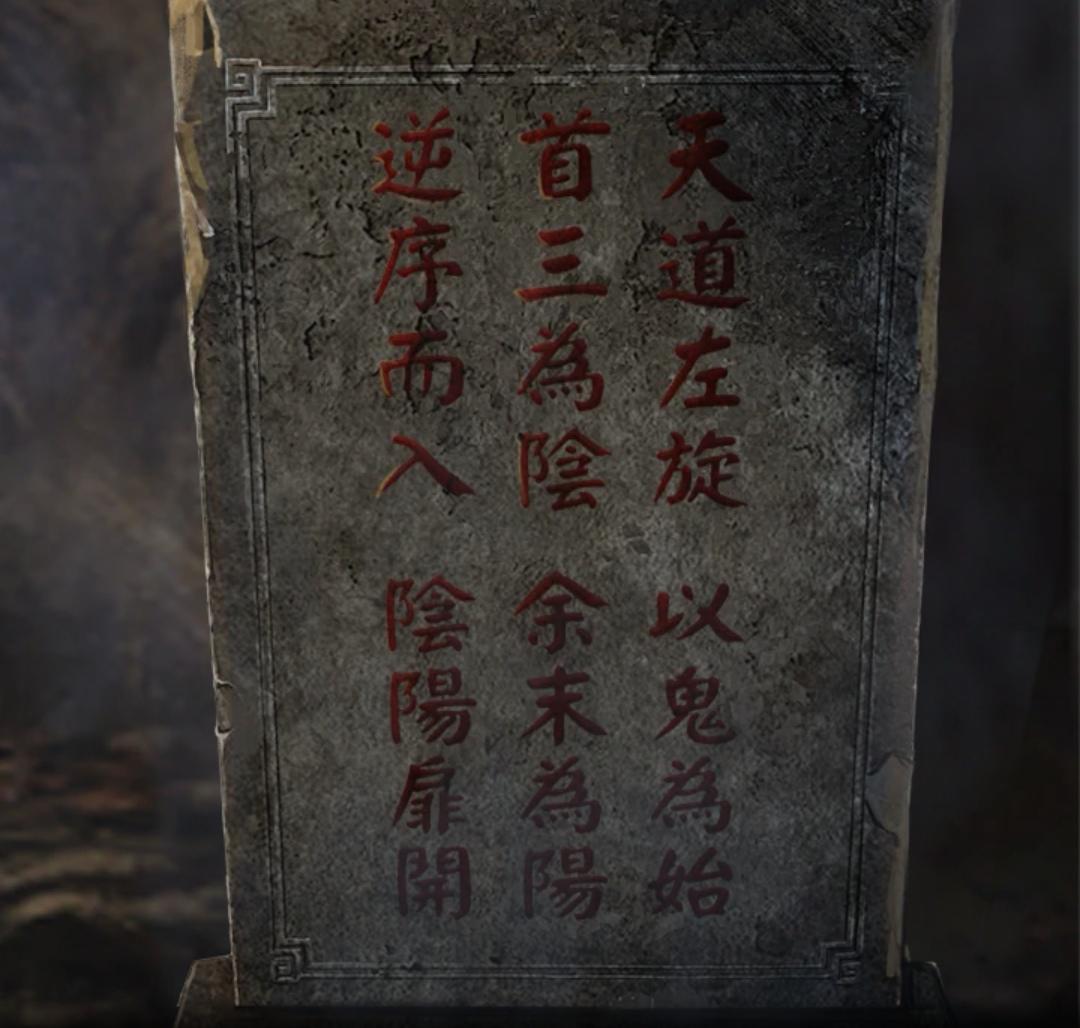 天道左旋 以鬼為始
首三為陰 余末為陽
逆序而入 陰陽扉開